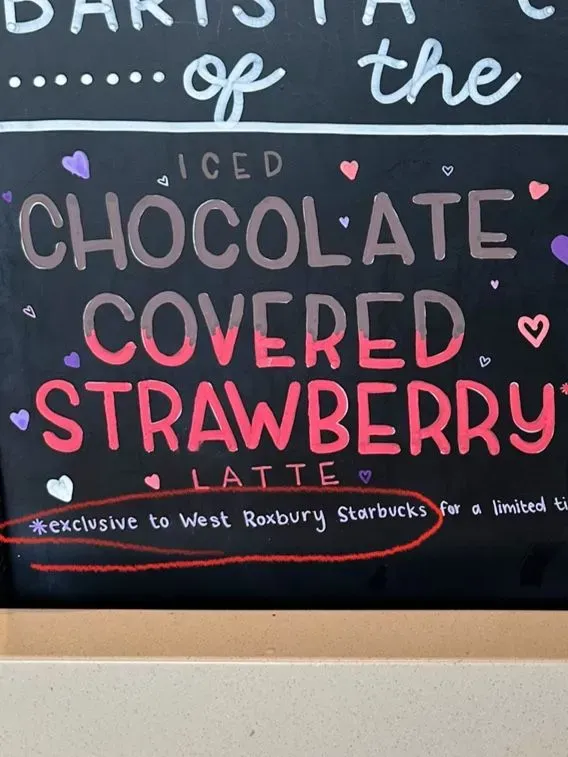 BARISTA
....... of the
ICED
CHOCOLATE
COVERED
STRAWBERRY*
LATTE
*exclusive to West Roxbury Starbucks for a limited